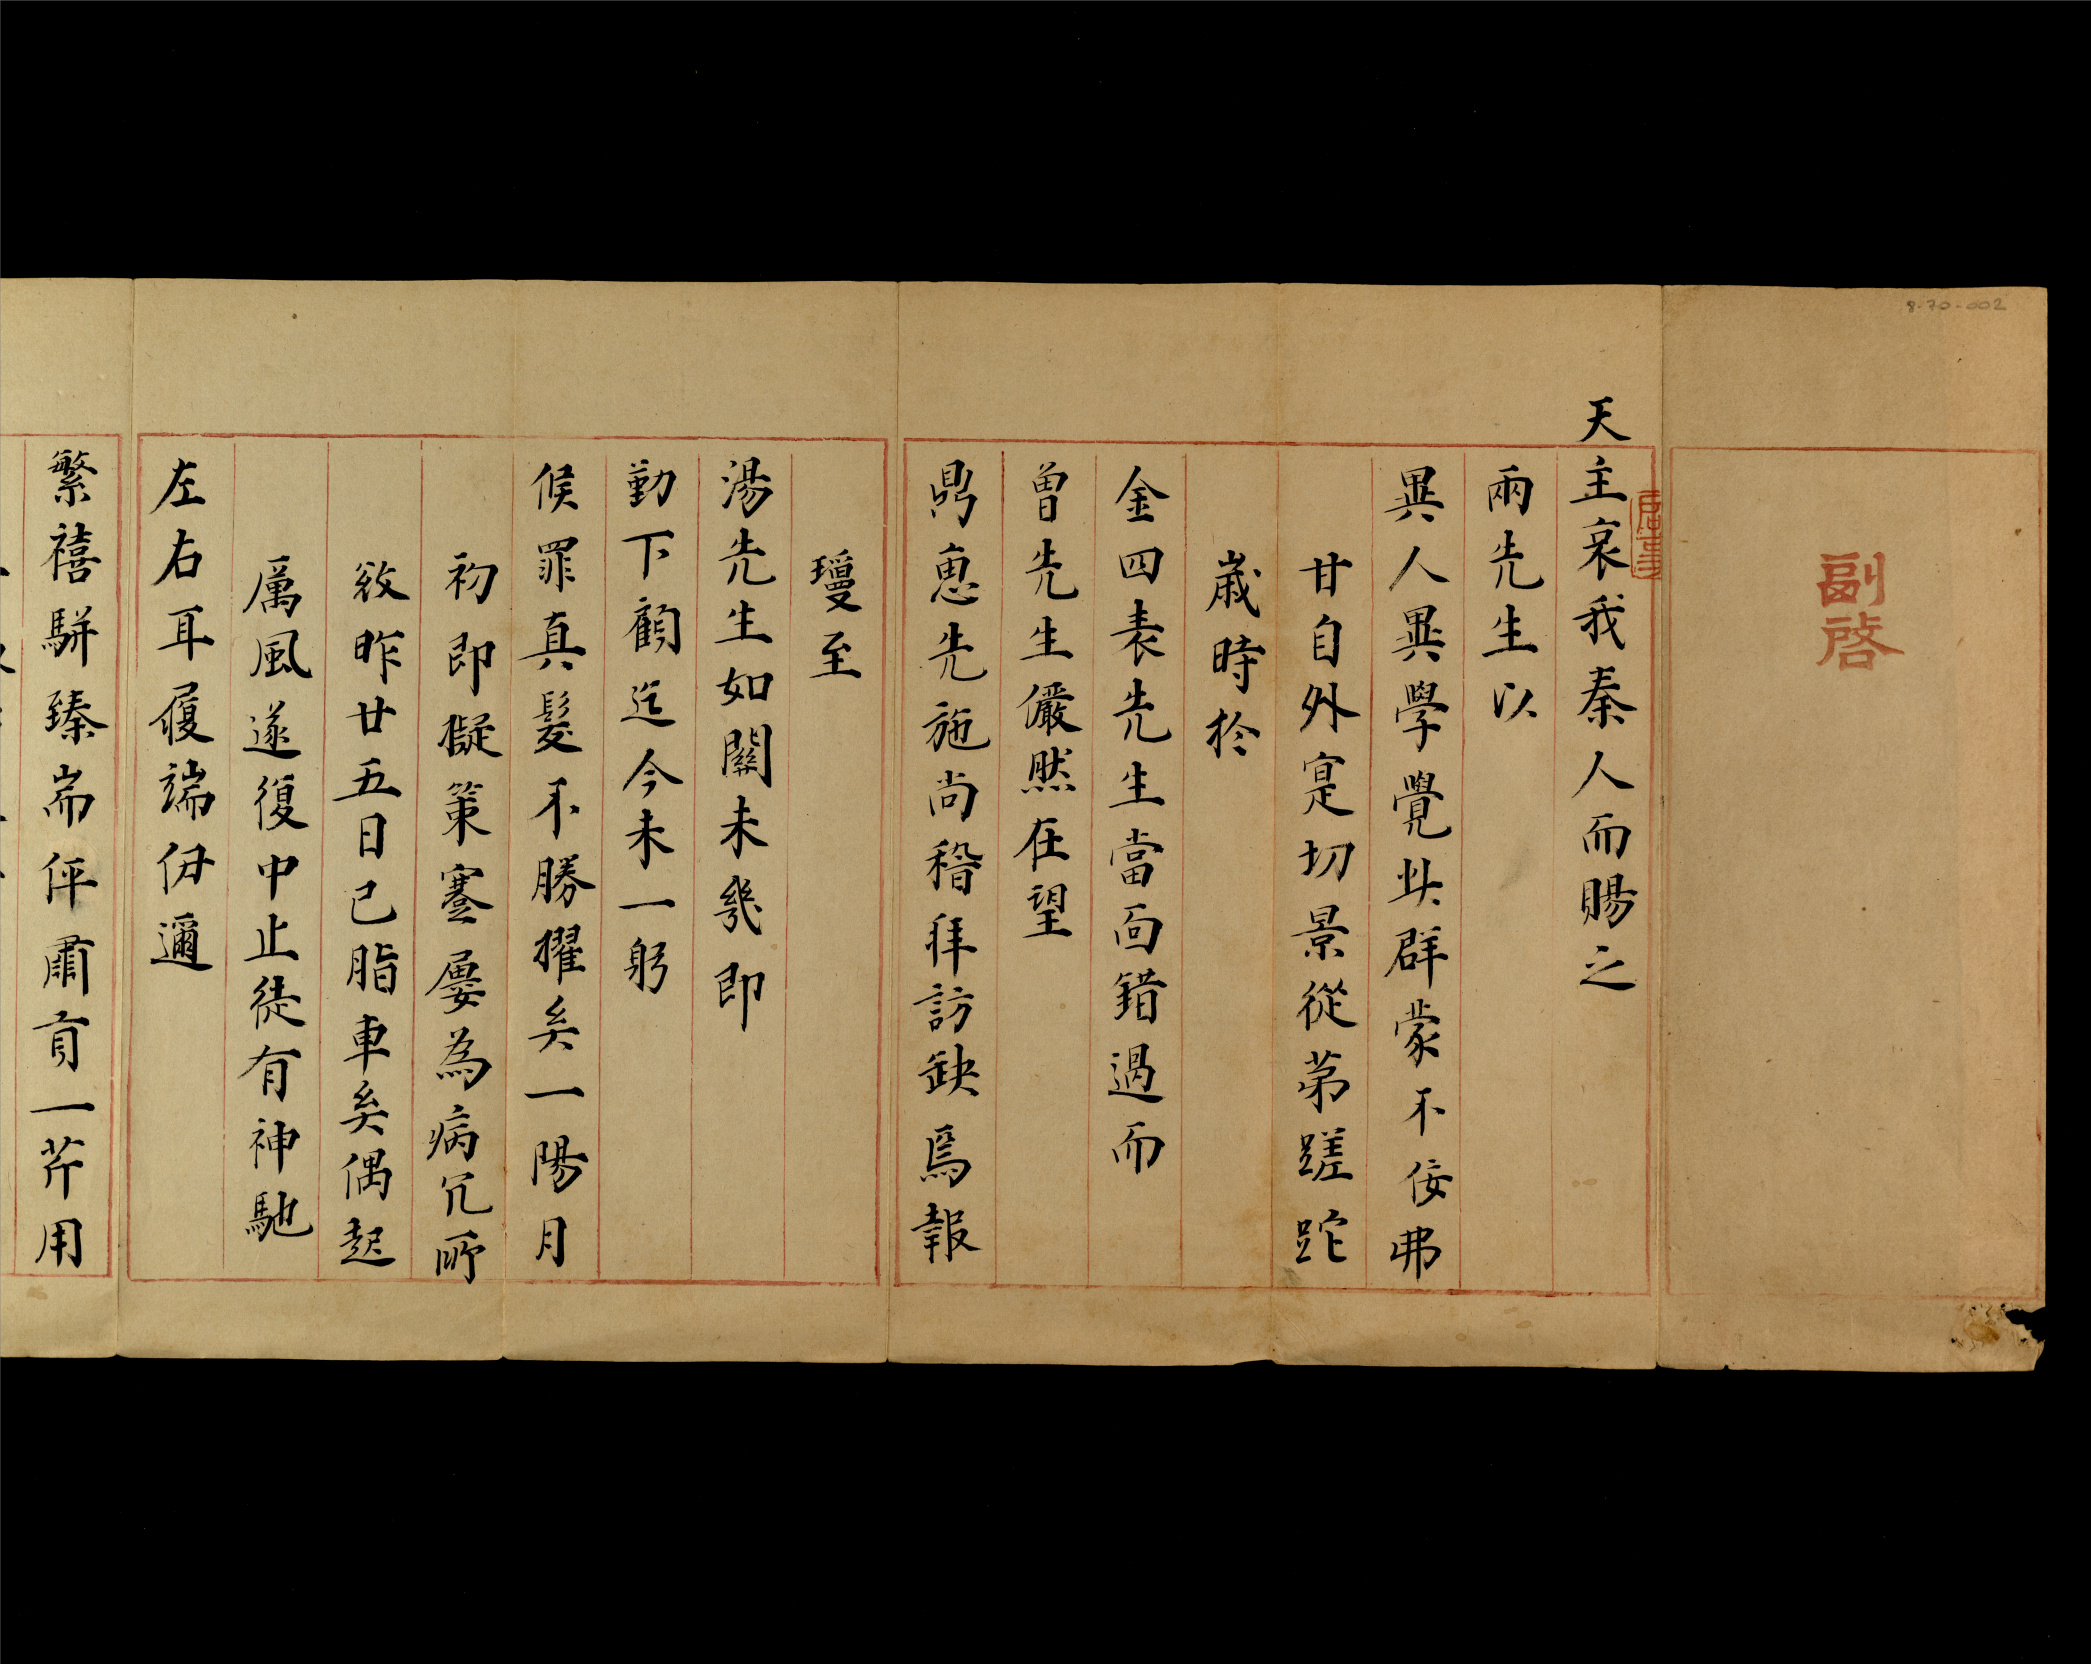 8-70-002
副啓
天主哀我秦人而賜之
兩先生以
異人異學覺此群蒙不佞弗
甘自外寔切景從苐蹉跎
歲時於
金四表先生當面錯過而
曾先生儼然在望
鼎惠先施尚稽拜訪缺焉報
瓊至
湯先生如關未幾即
勤下顧迄今未一躬
候罪真髮不勝擢矣一陽月
初即擬策蹇屢為病冗所
敚昨廿五日已脂車矣偶起
厲風遂復中止徒有神馳
左右耳履端伊邇
繁禧駢臻耑伻肅貢一芹用